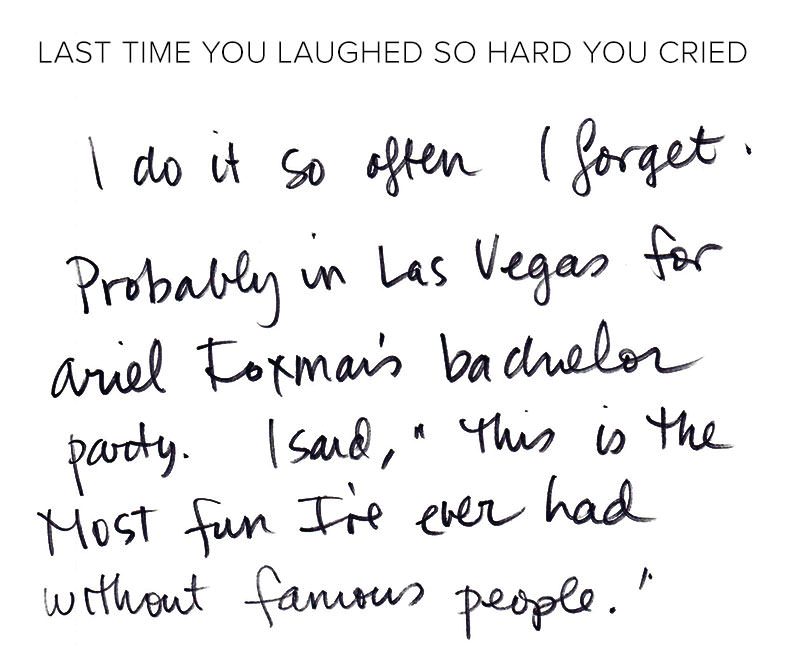 LAST TIME YOU LAUGHED SO HARD YOU CRIED
I do it so often I forget.
Probably in Las Vegas for
ariel Foxman's bachelor
party. I said, "This is the
Most fun I've ever had
without famous people."